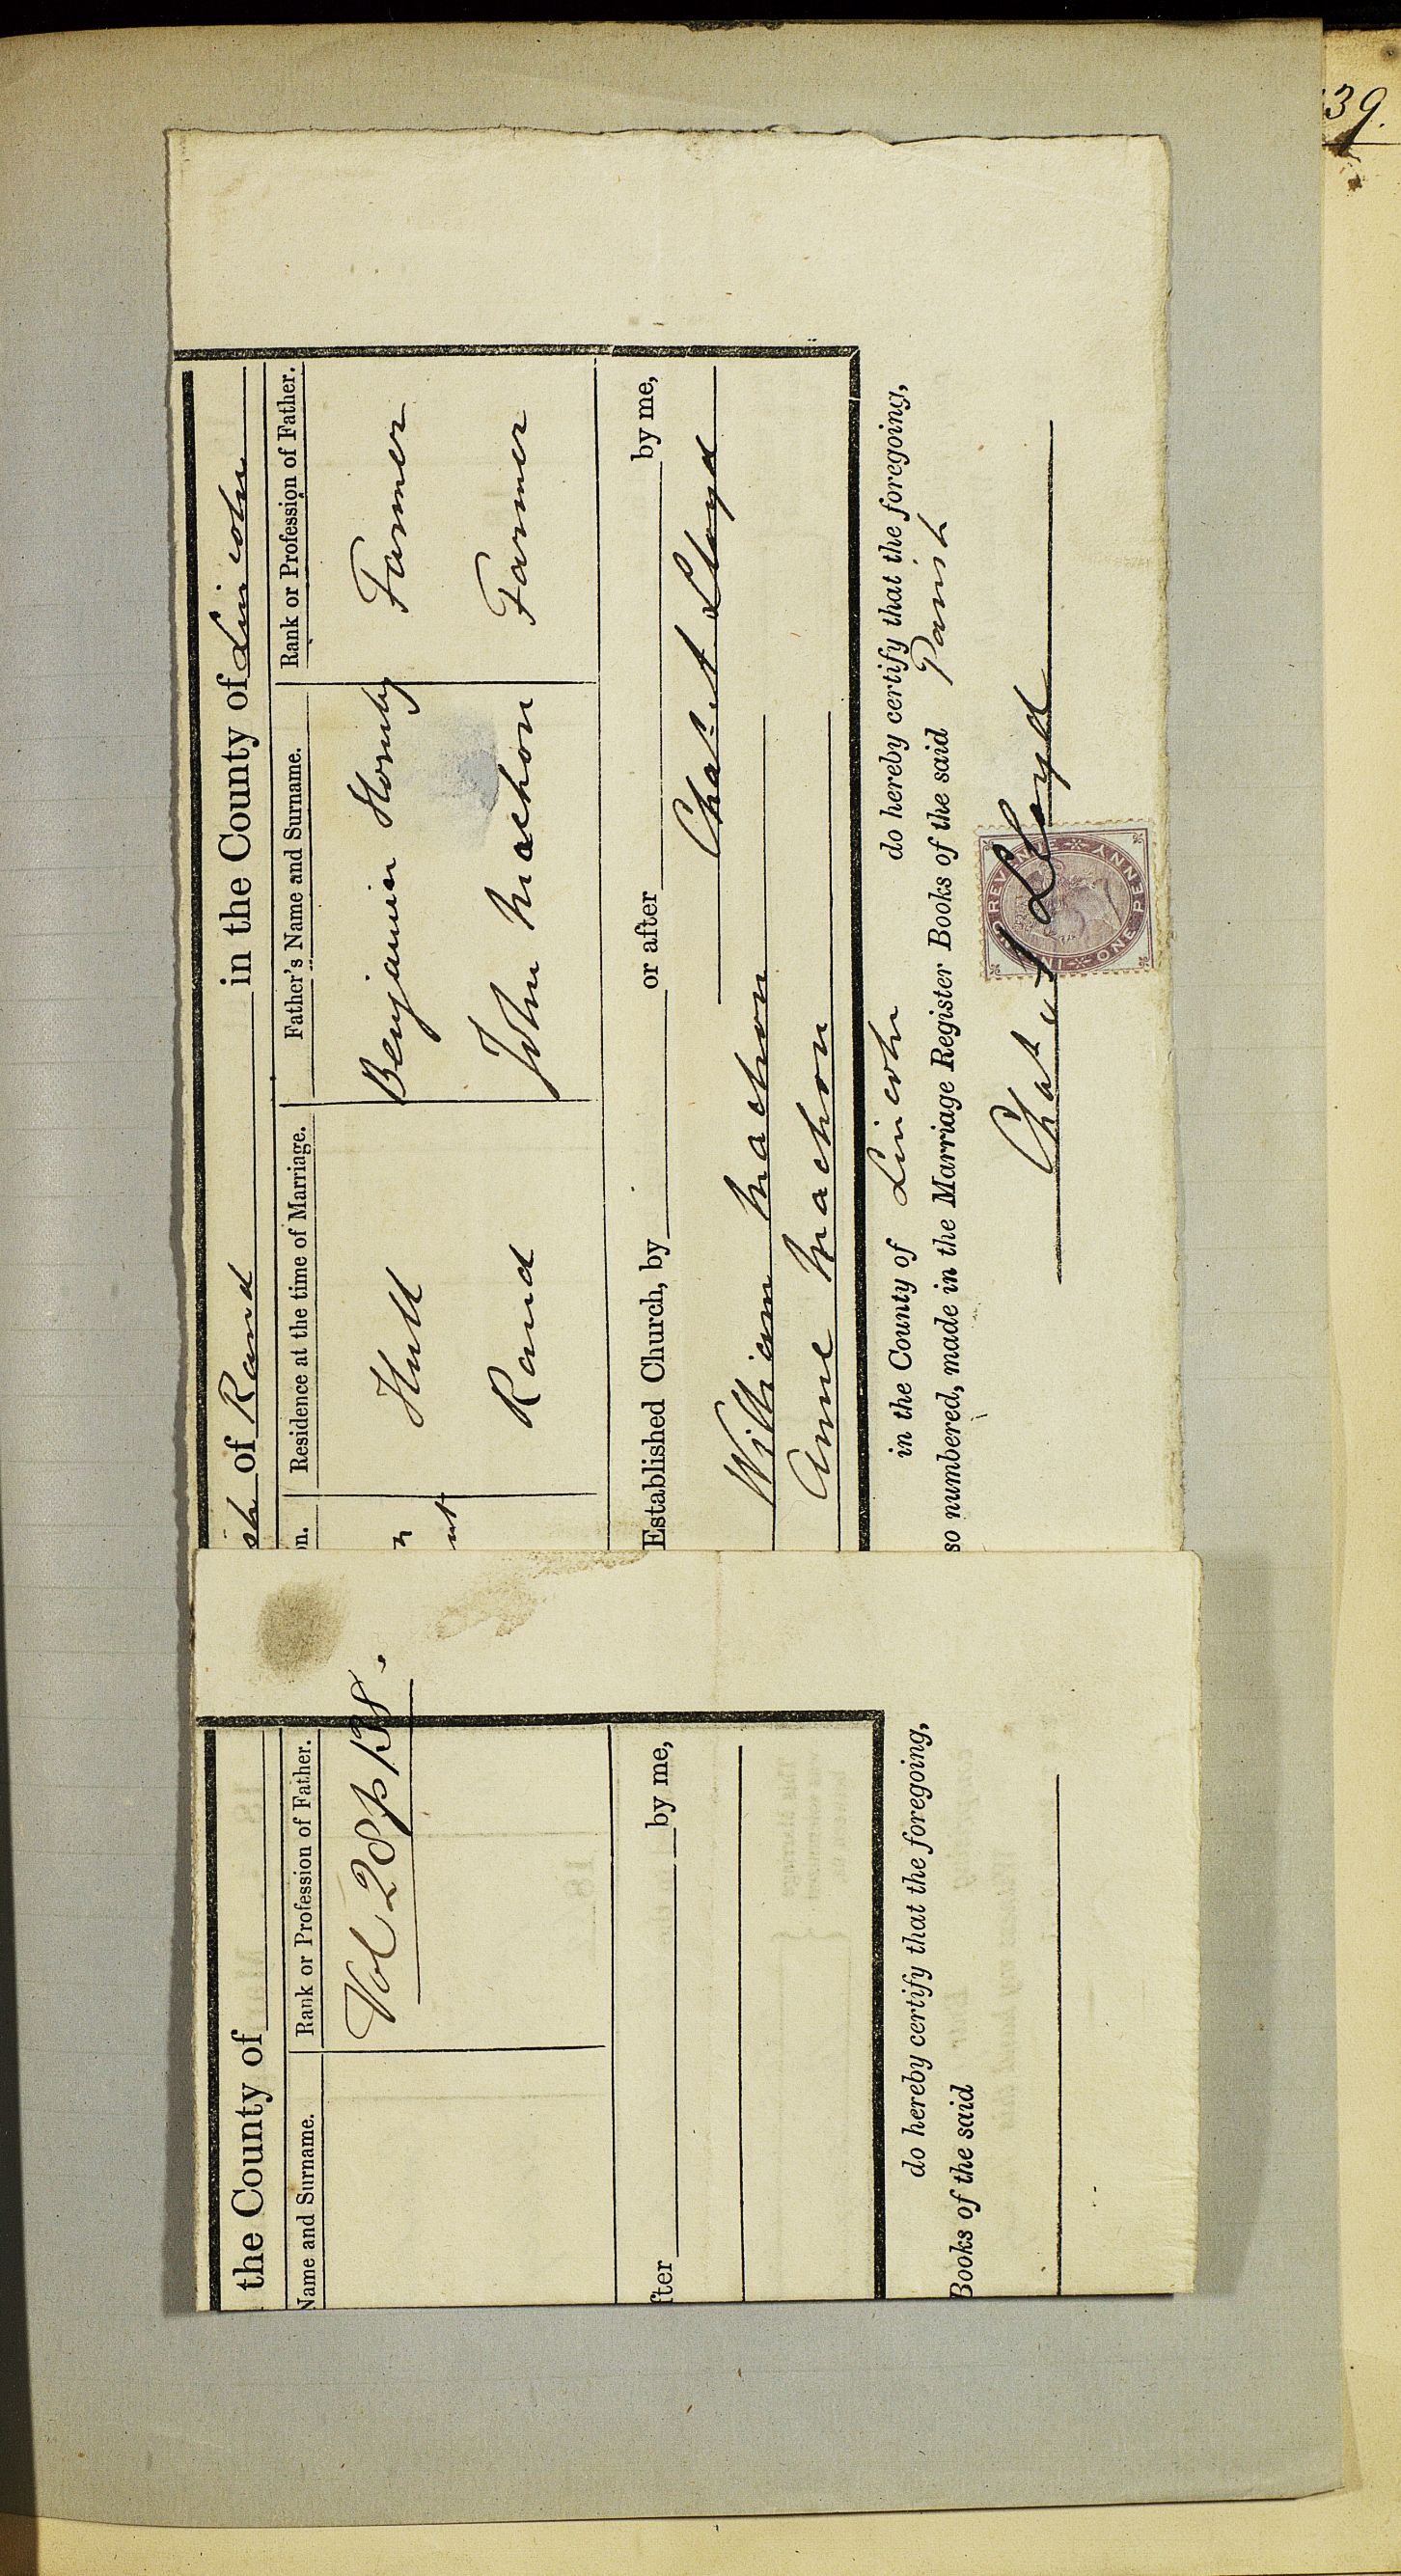 39.
sh of Rand in the County of Lincoln
on. Residence at the time of Marriage. Father's Name and Surname. Rank or Profession of Father.
Hull Benjamin Hornby Farmer
Rand John Machon Farmer
Established Church, by or after by me,
Chas. A. Lloyd
William Machon
Anne Machon
in the County of Lincoln do hereby certify that the foregoing,
so numbered, made in the Marriage Register Books of the said Parish
Chas. A Lloyd
INLAND REVENUE ONE PENNY
the County of
Name and Surname. Rank or Profession of Father.
Vol 28 p 138.
fter by me,
do hereby certify that the foregoing,
Books of the said